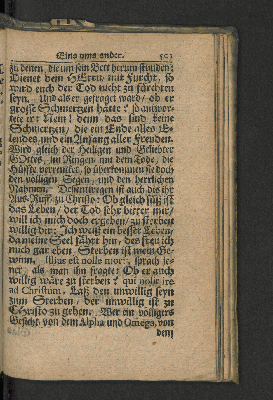 Eins ums ander. 503
zu denen, die um sein Bett herum stunden:
Dienet dem HErrn, mit Furcht, so
wird euch der Tod nicht zu fürchten
seyn. Und als er gefraget ward, ob er
grosse Schmertzen hätte? so antwor-
tete er: Nein! denn das sind keine
Schmertzen, die ein Ende alles E-
lendes, und ein Anfang aller Freuden.
Wird gleich der Heiligen und Geliebter
GOttes, im Ringen mit dem Tode, die
Hüffte verrencket, so überkommen sie doch
den völligen Segen, und den herrlichen
Nahmen. Deßentwegen ist auch dis ihr
Aus-Ruff: zu Christo: Ob gleich süß ist
das Leben/ der Tod sehr bitter mir/
will ich mich doch ergeben/ zu sterben
willig dir: Ich weiß ein besser Leben/
da meine Seel fährt hin, des freu ich
mich gar eben, Sterben ist mein Ge-
winn. Illius est nolle mori, sprach je-
ner, als man ihn fragte: Ob er auch
willig wäre zu sterben? qui nolit ire
ad Christum. Laß den unwillig seyn
zum Sterben, der unwillig ist zu
CHristo zu gehen. Wer ein völligers
Gesicht, von dem Alpha und Omega, von
dem